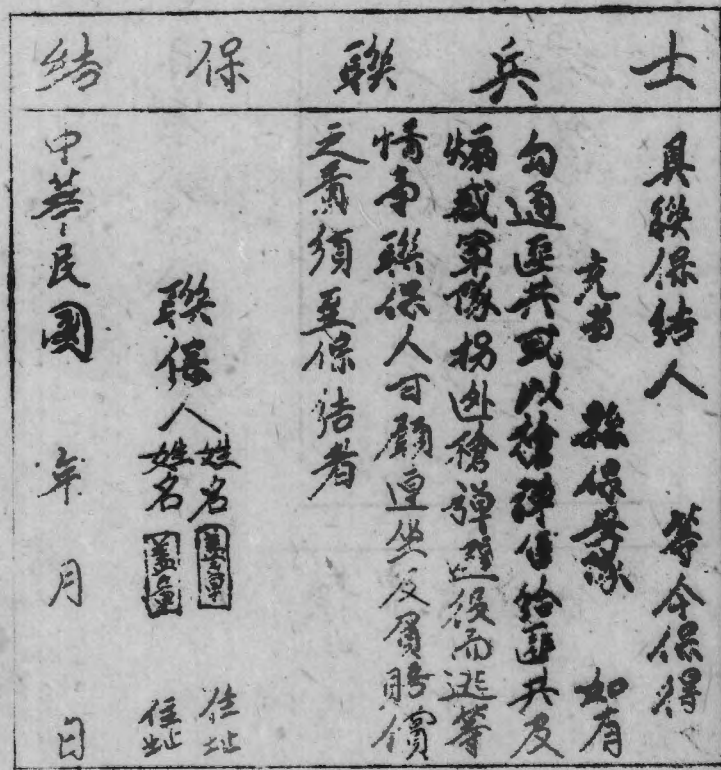 士兵聯保結
具聯保結人 等今保得
充當 縣保安隊 如有
勾通匪共或以槍彈售給匪共及
煽惑軍隊拐逃槍彈避役而逃等
情事聯保人甘願連坐及負賠償
之責須至保結者
聯保人姓名蓋章 住址
姓名蓋章 住址
中華民國 年 月 日